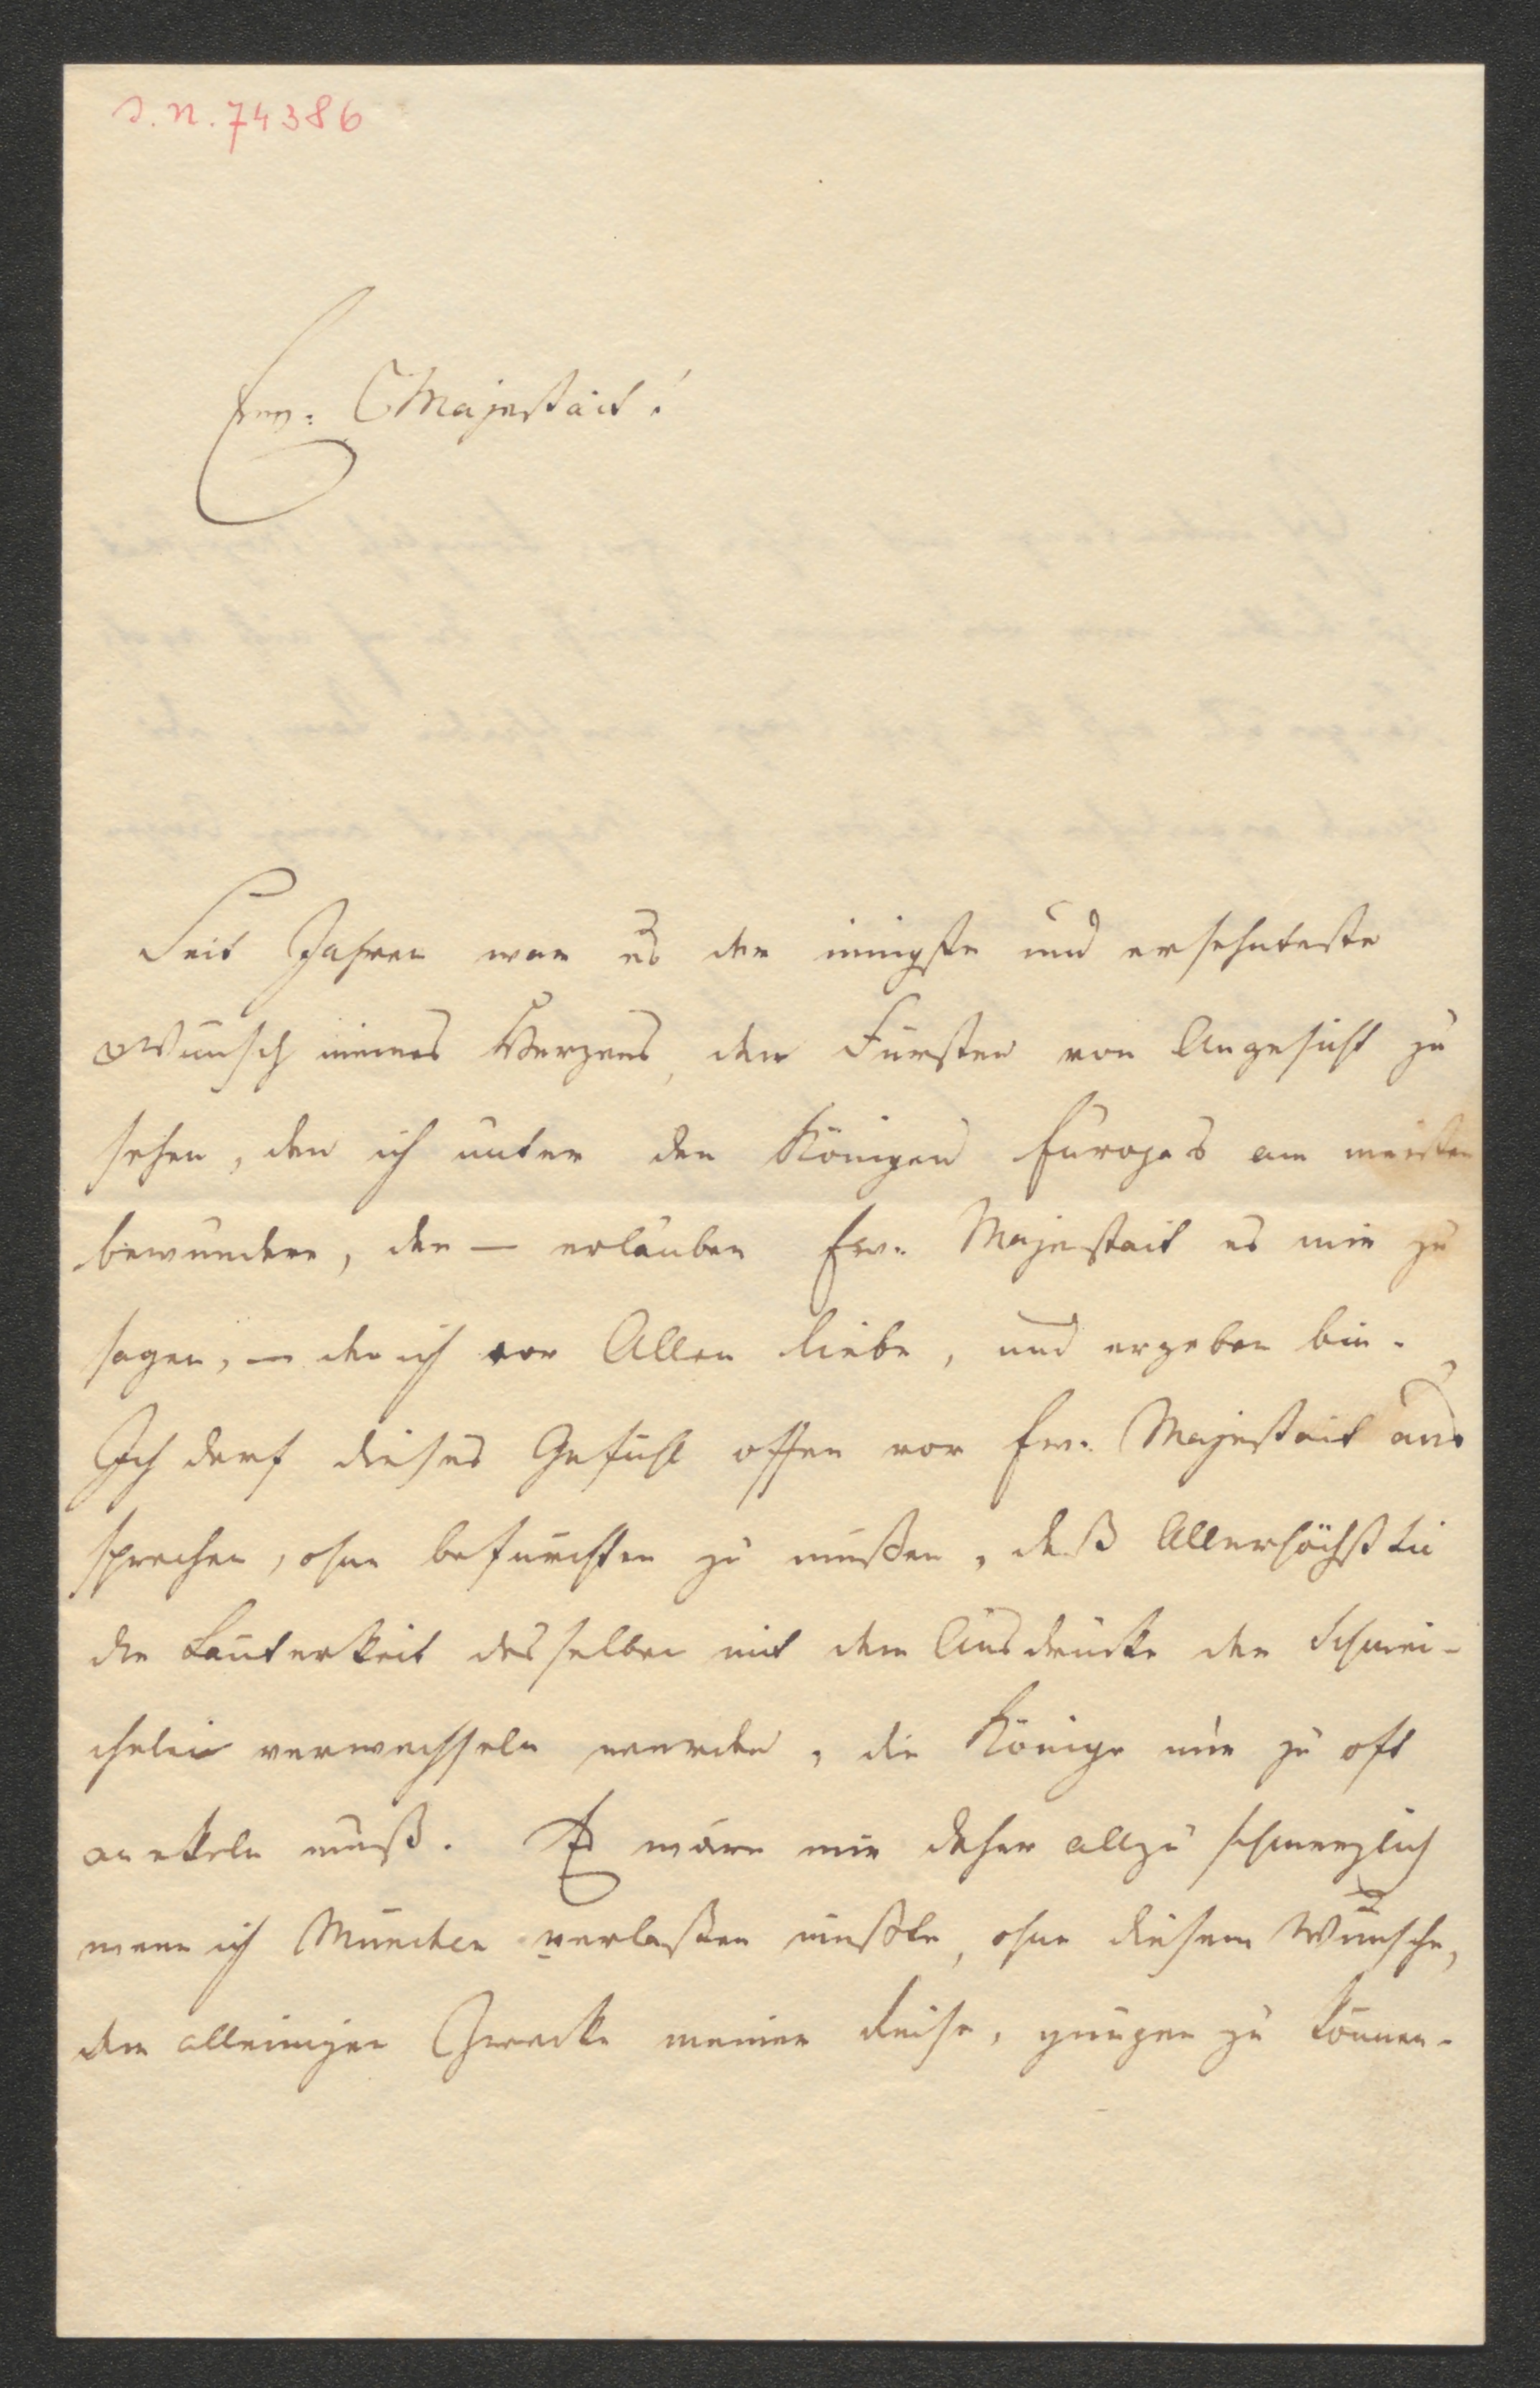 J. N. 74386
Ew. Majestät!
Seit Jahren war es der innigste und ersehnteste
Wunsch meines Herzens, den Fürsten von Angesicht zu
sehen, den ich unter den Königen Europas am meisten
bewundere, den — erlauben Ew. Majestät es mir zu
sagen, — den ich vor Allen liebe, und ergeben bin.
Ich darf dieses Gefühl offen vor Ew. Majestät aus
sprechen, ohne befürchten zu müßen, daß Allerhöchst Sie
die Lauterkeit desselben mit dem Ausdrucke der Schmei-
chelei verwechseln werden, die Könige nur zu oft
anekeln muß. Es wäre mir daher allzu schmerzlich
wenn ich München verlaßen müßte, ohne diesem Wunsche,
dem alleinigen Zwecke meiner Reise, genügen zu können.